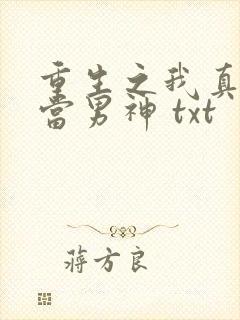 重生之我真
当男神 txt
蒋方良